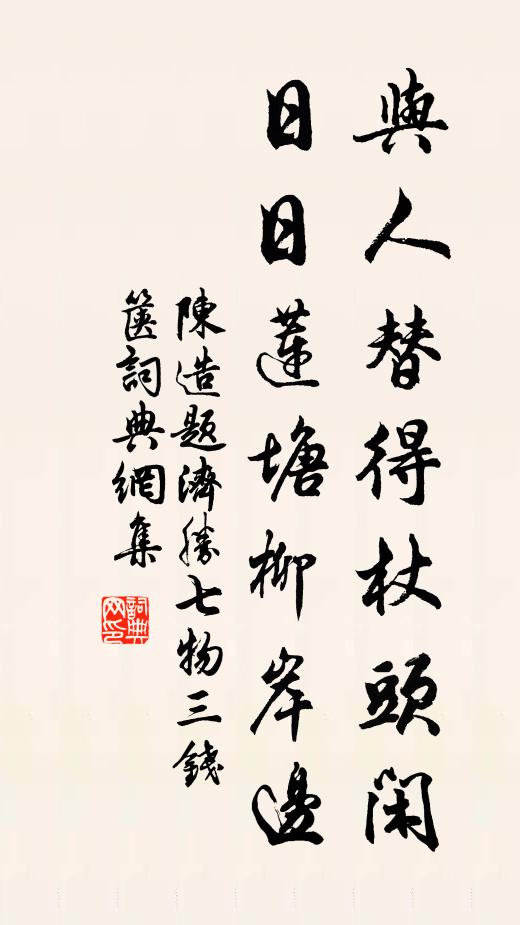 與人替得杖頭閑
日日蓮塘柳岸邊
陳造題濟勝七物三錢
篋詞典網集
詞典网印